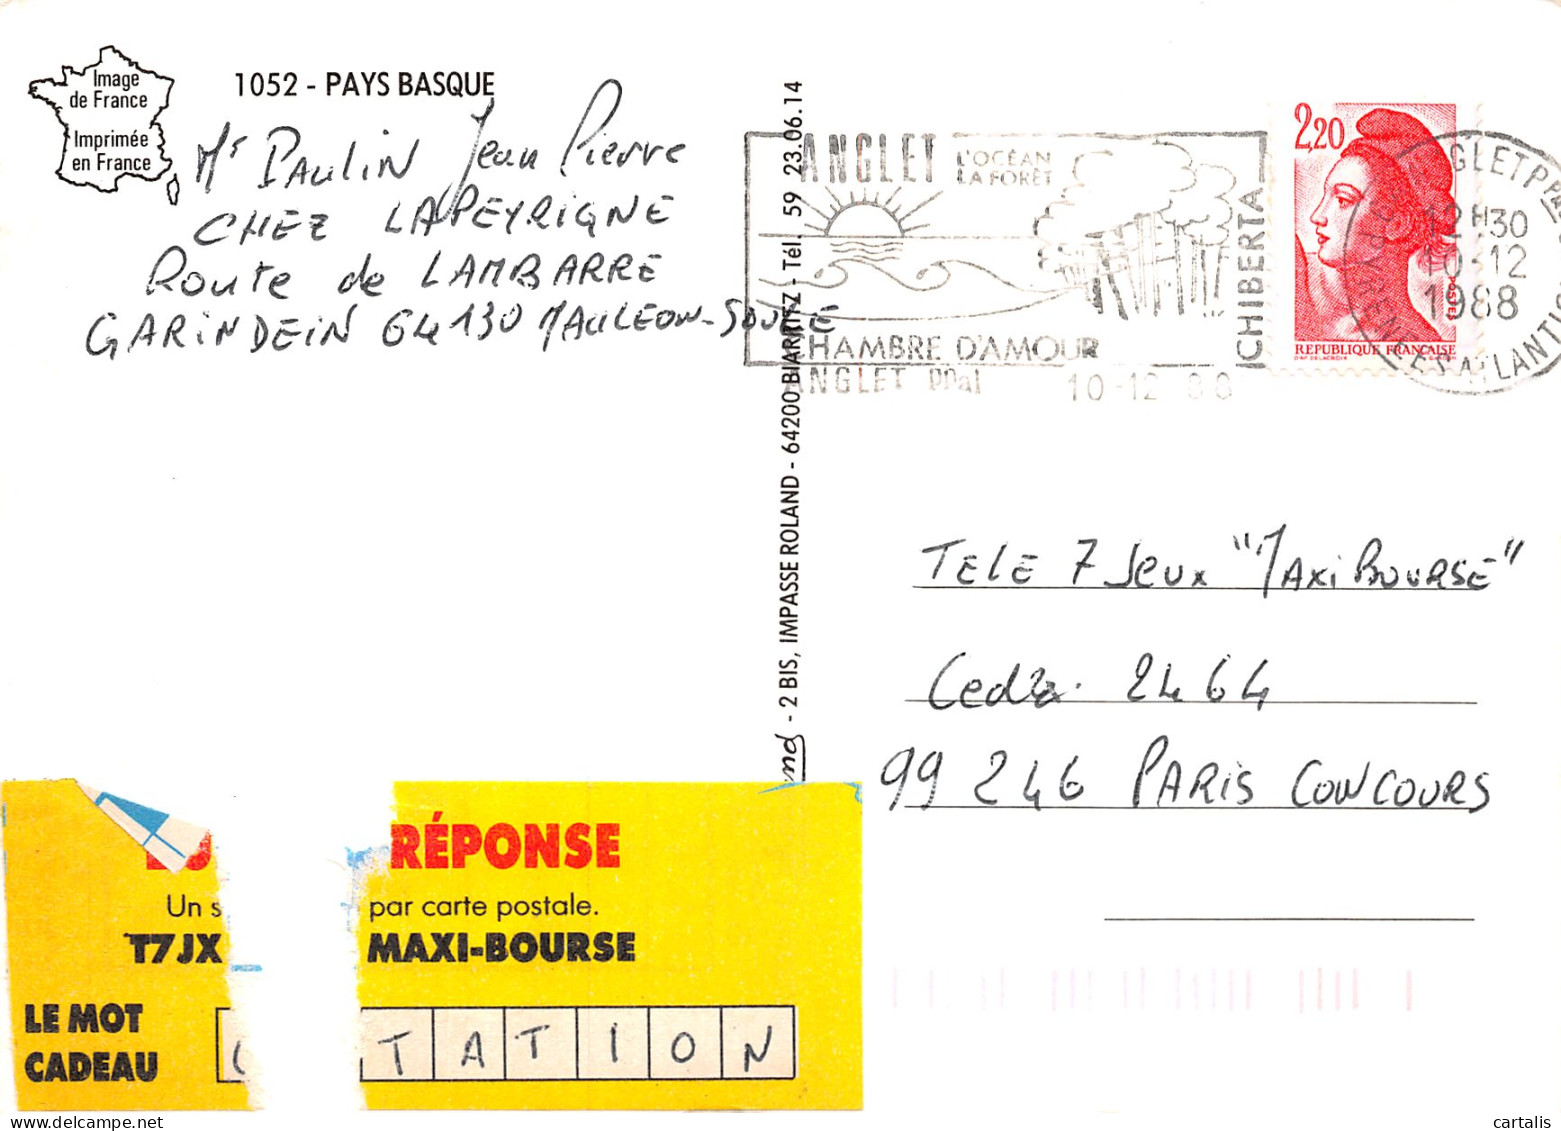 Image
de France
Imprimée
en France
1052 - PAYS BASQUE
Mr PAULIN Jean Pierre
CHEZ LAPEYRIGNE
Route de LAMBARRE
GARINDEIN 64130 MAULEON-SOULE
- 2 BIS, IMPASSE ROLAND - 64200 BIARRITZ - Tél. 59 23.06.14
ANGLET L'OCÉAN
LA FORÊT
CHIBERTA
CHAMBRE D'AMOUR
ANGLET PPal 10-12 88
2,20
POSTES
REPUBLIQUE FRANÇAISE
12H30
10-12
1988
TELE 7 Jeux "MAXi BOURSE"
Cedex 2464
99 246 PARIS CONCOURS
RÉPONSE
Un s par carte postale.
T7JX MAXI-BOURSE
LE MOT
CADEAU
C TATION
cartalis